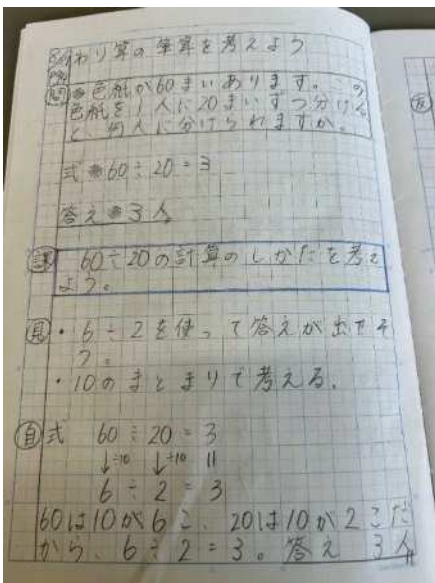 わり算の筆算を考えよう
問 色紙が60まいあります。この
色紙を1人に20まいずつ分ける
と、何人に分けられますか。
式 60÷20=3
答え 3人
課 60÷20の計算のしかたを考え
よう。
見 ・6÷2を使って答えが出せそ
う。
・10のまとまりで考える。
自 式 60÷20=3
↓÷10 ↓÷10 〃
6÷2=3
60は10が6こ、20は10が2こだ
から、6÷2=3。答え 3人